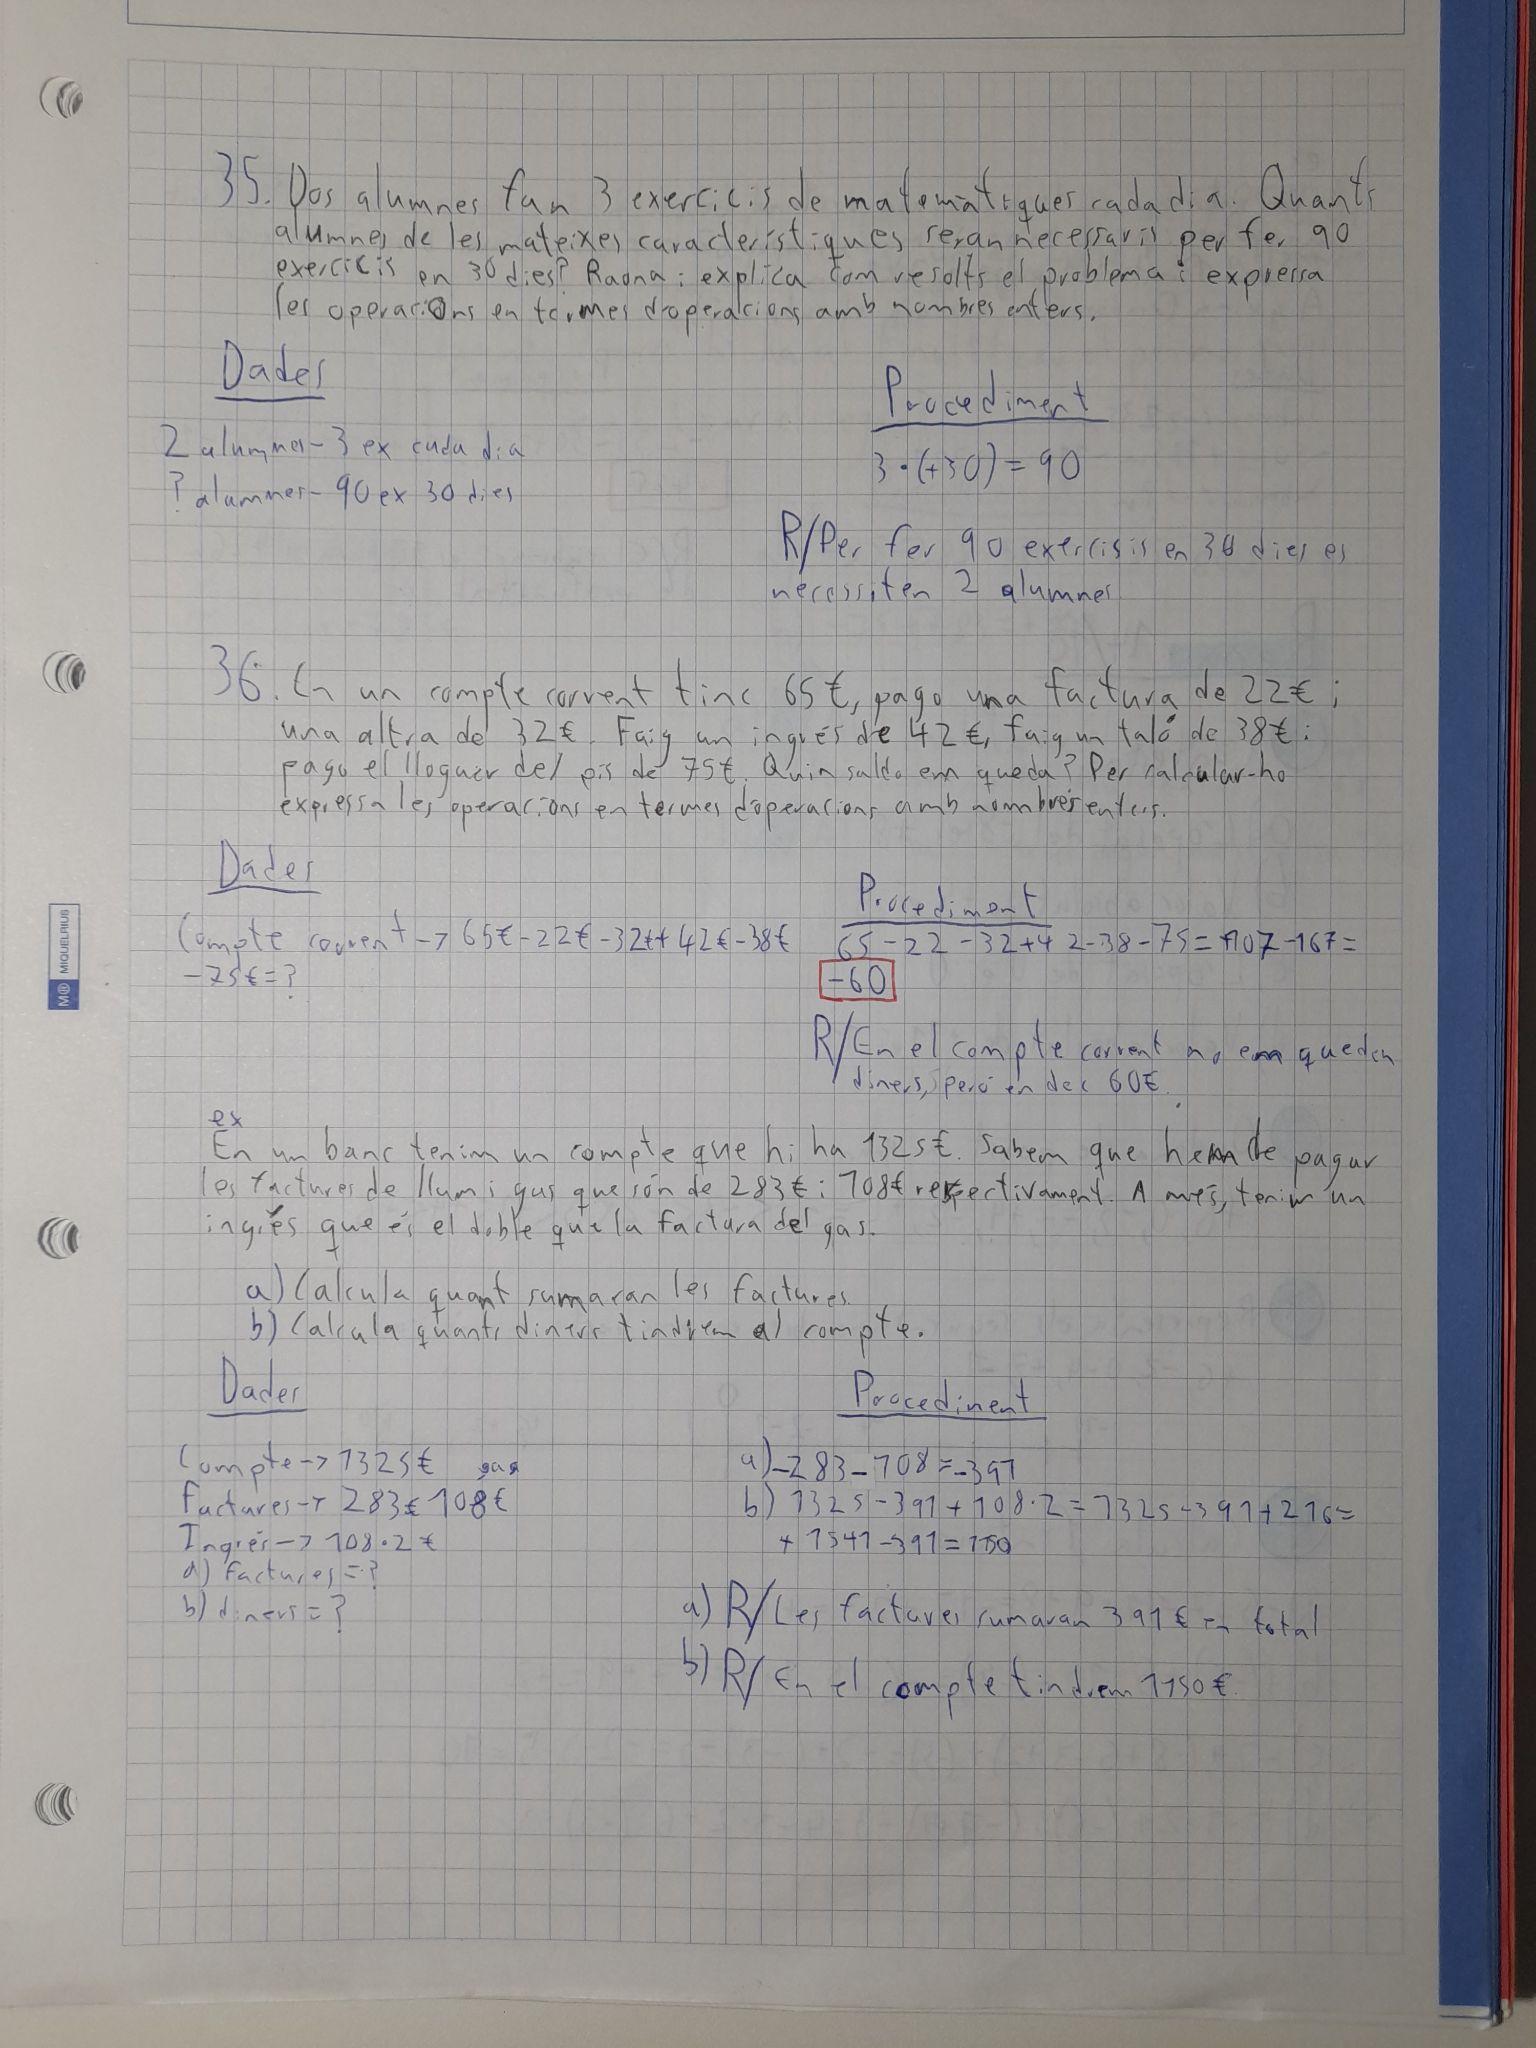 35. Dos alumnes fan 3 exercicis de matemàtiques cada dia. Quants
alumnes de les mateixes característiques seran necessaris per fer 90
exercicis en 30 dies? Raona i explica com resolts el problema i expressa
les operacions en termes d'operacions amb nombres enters.
Dades
Procediment
2 alumnes - 3 ex cada dia
? alumnes - 90 ex 30 dies
3·(+30) = 90
R/Per fer 90 exercisis en 30 dies es
necessiten 2 alumnes
36. En un compte corrent tinc 65€, pago una factura de 22€ i
una altra de 32€. Faig un ingrés de 42€, faig un taló de 38€ i
pago el lloguer del pis de 75€. Quin saldo em queda? Per calcular-ho
expressa les operacions en termes d'operacions amb nombres enters.
Dades
Procediment
Compte corrent -> 65€-22€-32€+42€-38€
-75€=?
65-22-32+42-38-75=+107-167=
-60
R/En el compte corrent no em queden
diners, però en dec 60€.
ex
En un banc tenim un compte que hi ha 1325€. Sabem que hem de pagar
les factures de llum i gas que són de 283€ i 108€ respectivament. A més, tenim un
ingrés que és el doble que la factura del gas.
a) Calcula quant sumaran les factures.
b) Calcula quants diners tindrem al compte.
Dades
Procediment
Compte -> 1325€ gas
Factures -> 283€ 108€
Ingrés -> 108·2€
a) factures = ?
b) diners = ?
a) -283-108=-391
b) 1325-391+108·2=1325-391+216=
+1541-391=1150
a) R/Les factures sumaran 391€ en total
b) R/En el compte tindrem 1150€.
M® MIQUELRIUS